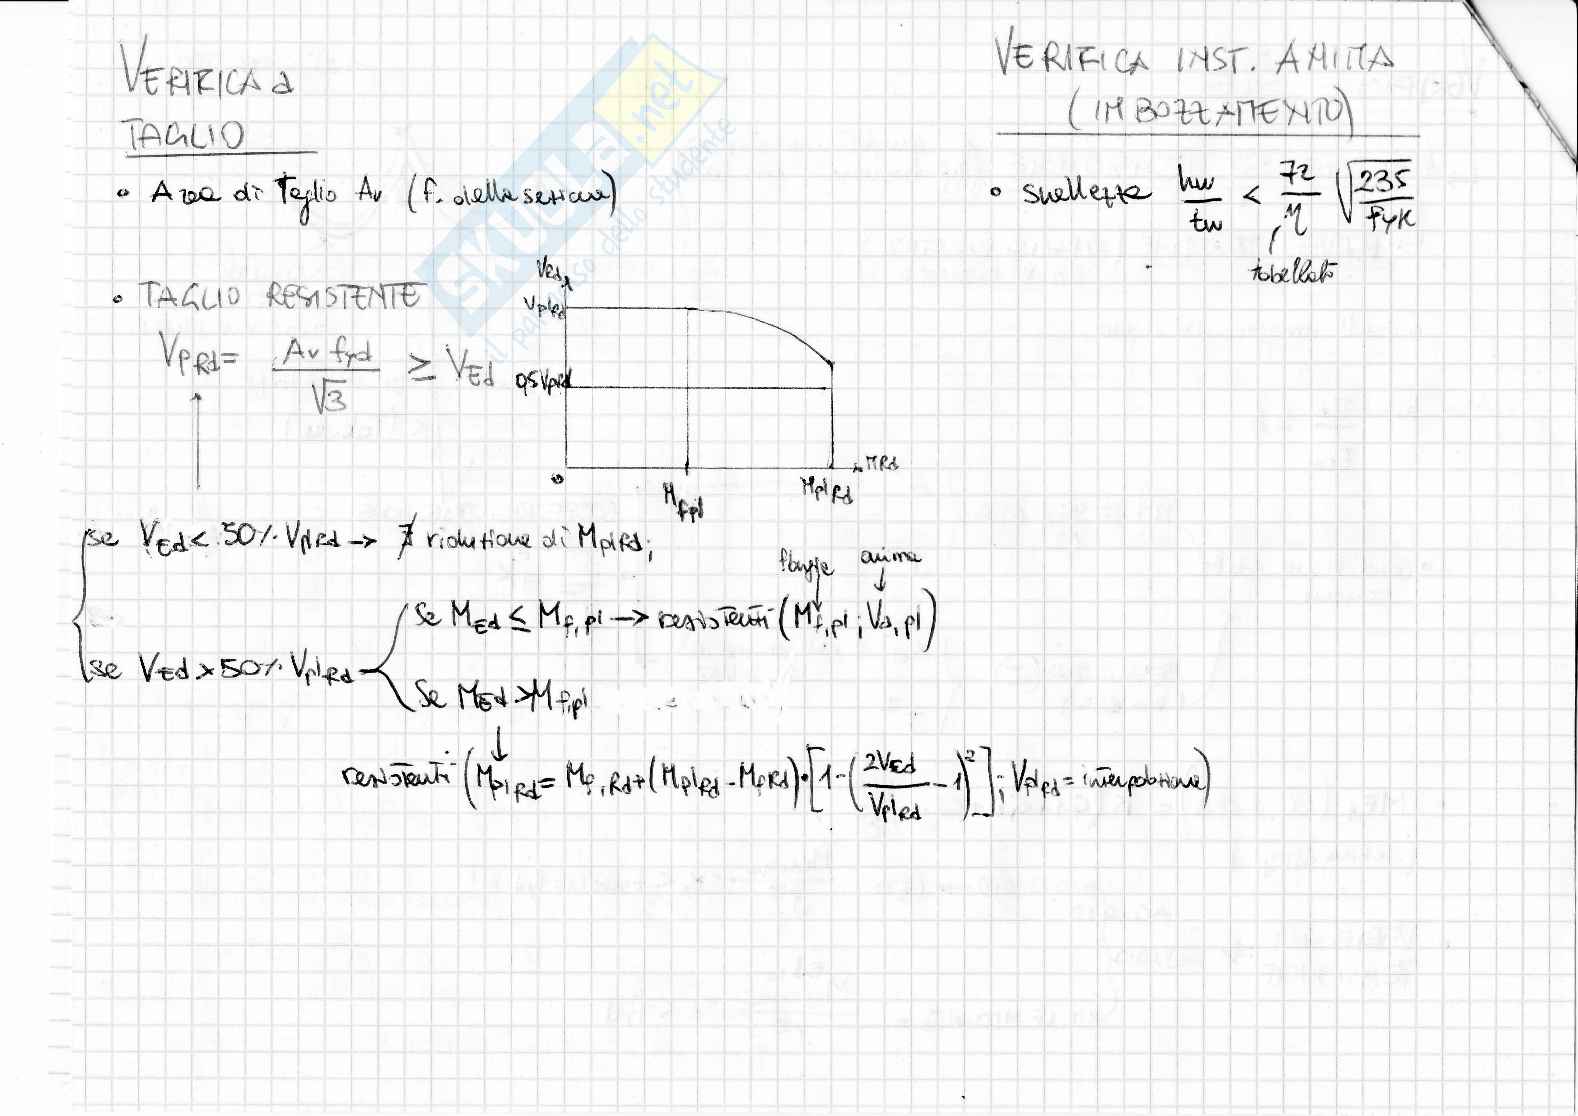 VERIFICA a
TAGLIO
• Area di Taglio Av (f. della sezione)
• TAGLIO RESISTENTE
VpRd = Av fyd / √3 ≥ VEd
VEd
VplRd
0,5 VplRd
0
Mf,pl
MplRd
MRd
se VEd < 50% VplRd → ∄ riduzione di MplRd;
se VEd > 50% VplRd
se MEd ≤ Mf,pl → resistenti (Mf,pl ; Va,pl)
flangie anima
se MEd > Mf,pl
↓
resistenti (MplRd = Mf,Rd + (MplRd - MfRd) • [1 - (2VEd / VplRd - 1)²] ; VplRd = interpolazione)
VERIFICA INST. ANIMA
(IMBOZZAMENTO)
• snellezza hw / tw < 72 / η √(235 / fyk)
tabellato
SKUOLA.net
il paradiso dello studente